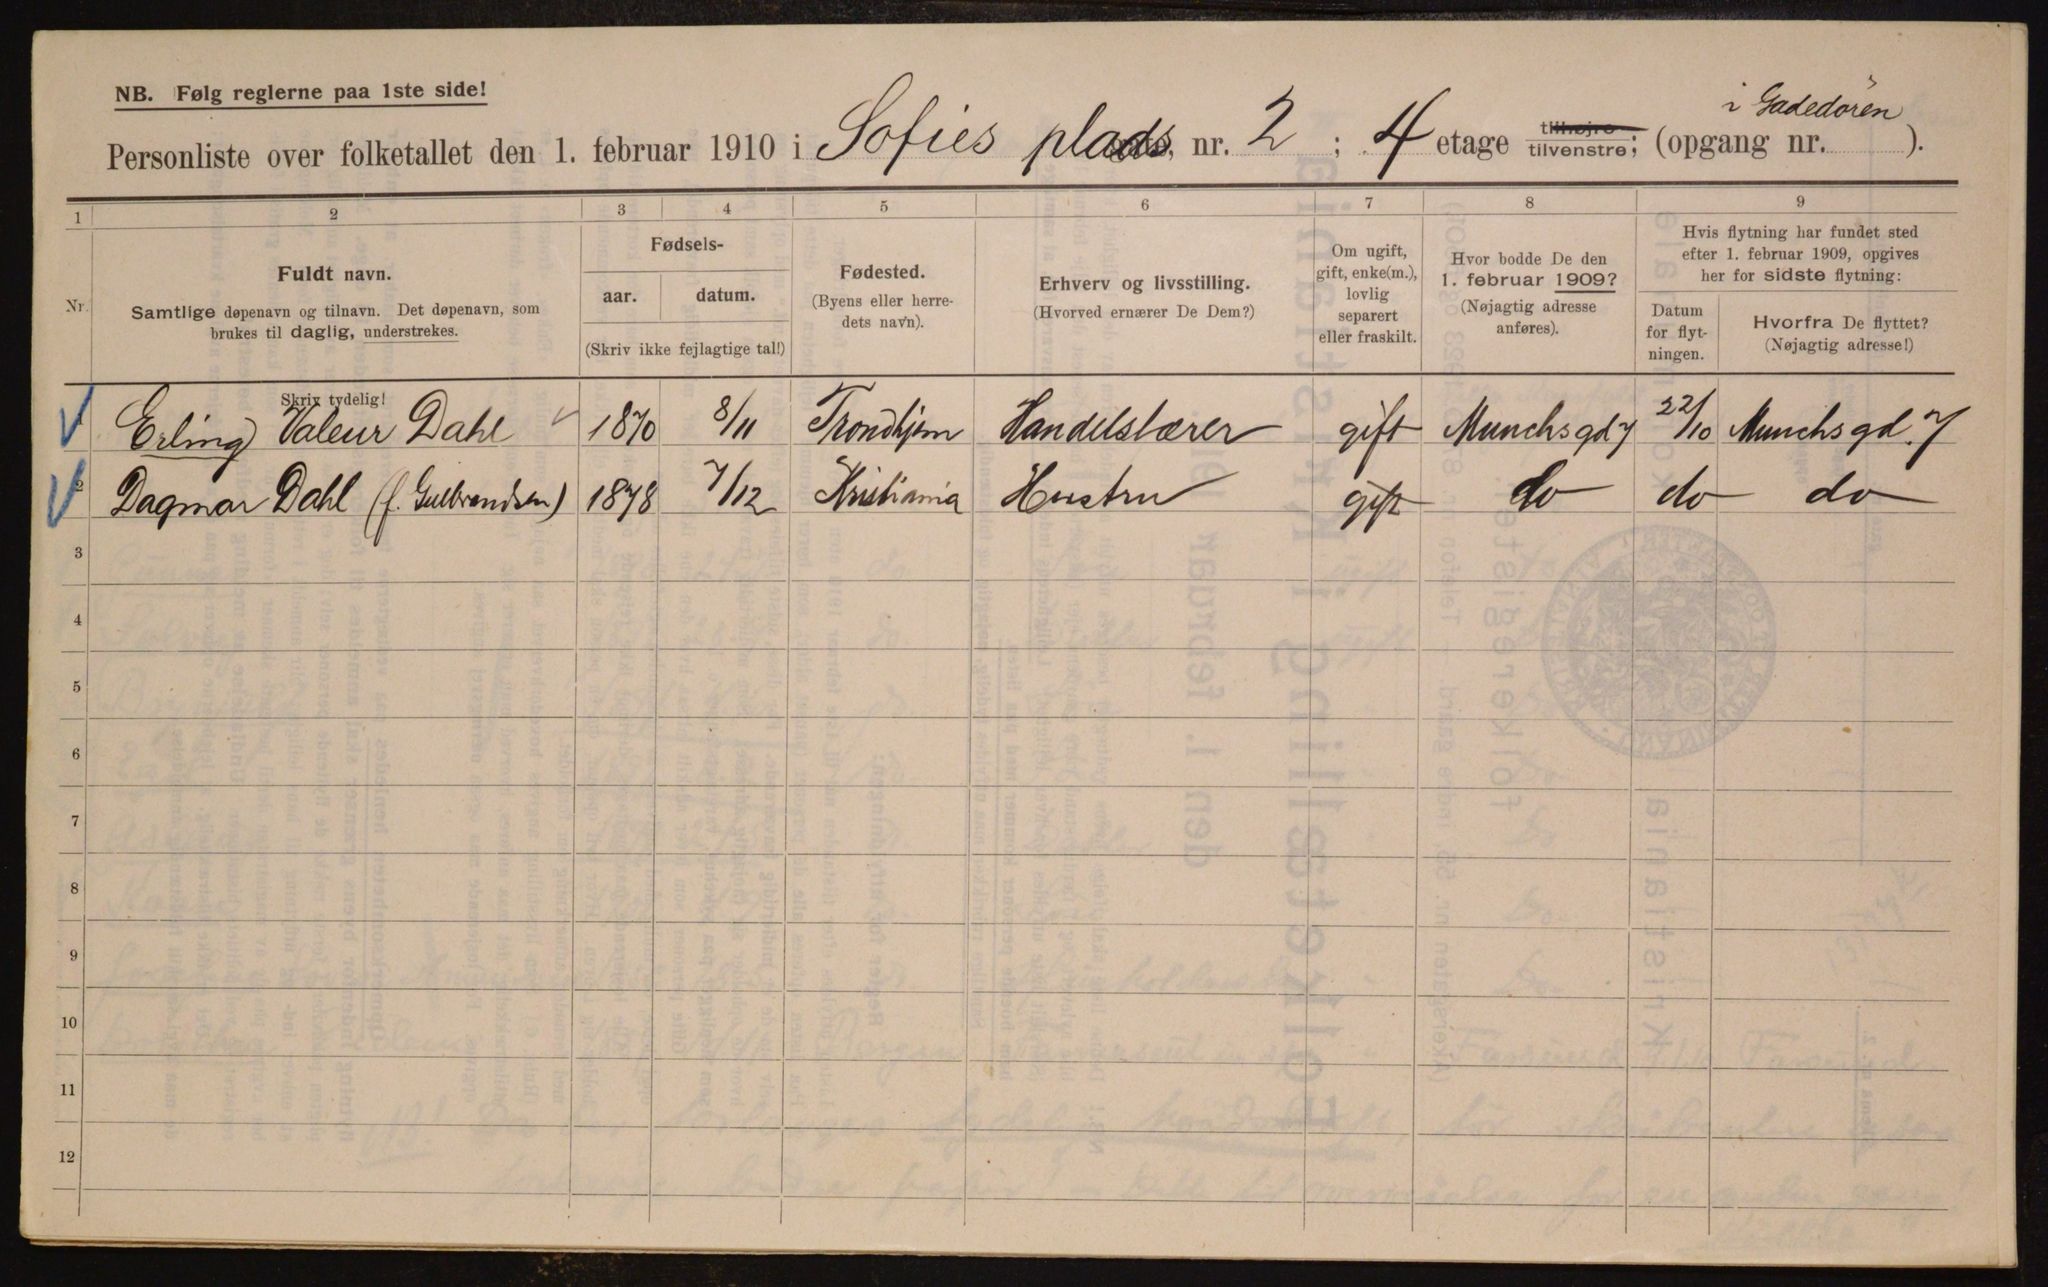 NB. Følg reglerne paa 1ste side!
Personliste over folketallet den 1. februar 1910 i Sofies plads, nr. 2 ; 4 etage tilhøjre tilvenstre; (opgang nr. i Gadedøren ).
1 2 3 4 5 6 7 8 9
Nr.
Fuldt navn.
Samtlige døpenavn og tilnavn. Det døpenavn, som
brukes til daglig, understrekes.
Fødsels-
aar. datum.
(Skriv ikke fejlagtige tal!)
Fødested.
(Byens eller herre-
dets navn).
Erhverv og livsstilling.
(Hvorved ernærer De Dem?)
Om ugift,
gift, enke(m.),
lovlig
separert
eller fraskilt.
Hvor bodde De den
1. februar 1909?
(Nøjagtig adresse
anføres).
Hvis flytning har fundet sted
efter 1. februar 1909, opgives
her for sidste flytning:
Datum
for flyt-
ningen.
Hvorfra De flyttet?
(Nøjagtig adresse!)
Skriv tydelig!
Erling Valeur Dahl 1870 8/11 Trondhjem Handelslærer gift Munchs gd 7 22/10 Munchs gd. 7
2 Dagmar Dahl (f. Gulbrandsen) 1878 7/12 Kristiania Hustru gift do do do
3
4
5
6
7
8
9
10
11
12